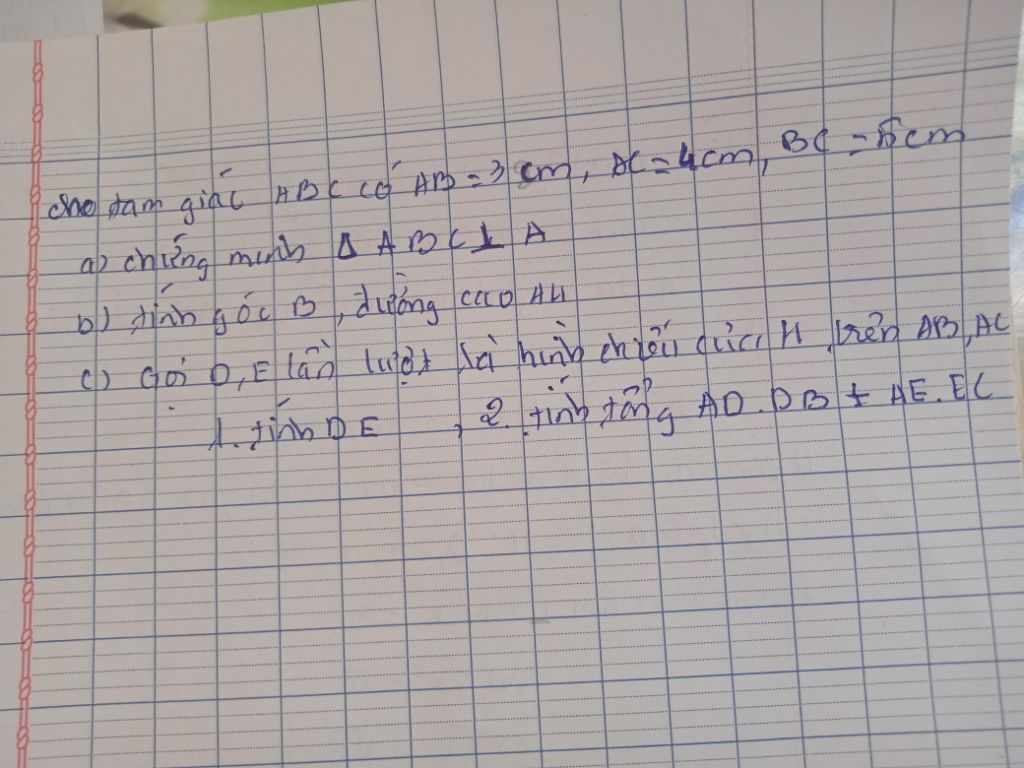 cho tam giác ABC có AB = 3 cm, AC = 4cm, BC = 5cm
a) chứng minh Δ ABC ⊥ A
b) tính góc B, đường cao AH
c) Gọi D, E lần lượt là hình chiếu của H trên AB, AC
1. tính DE , 2. tính tổng AD.DB + AE.EC